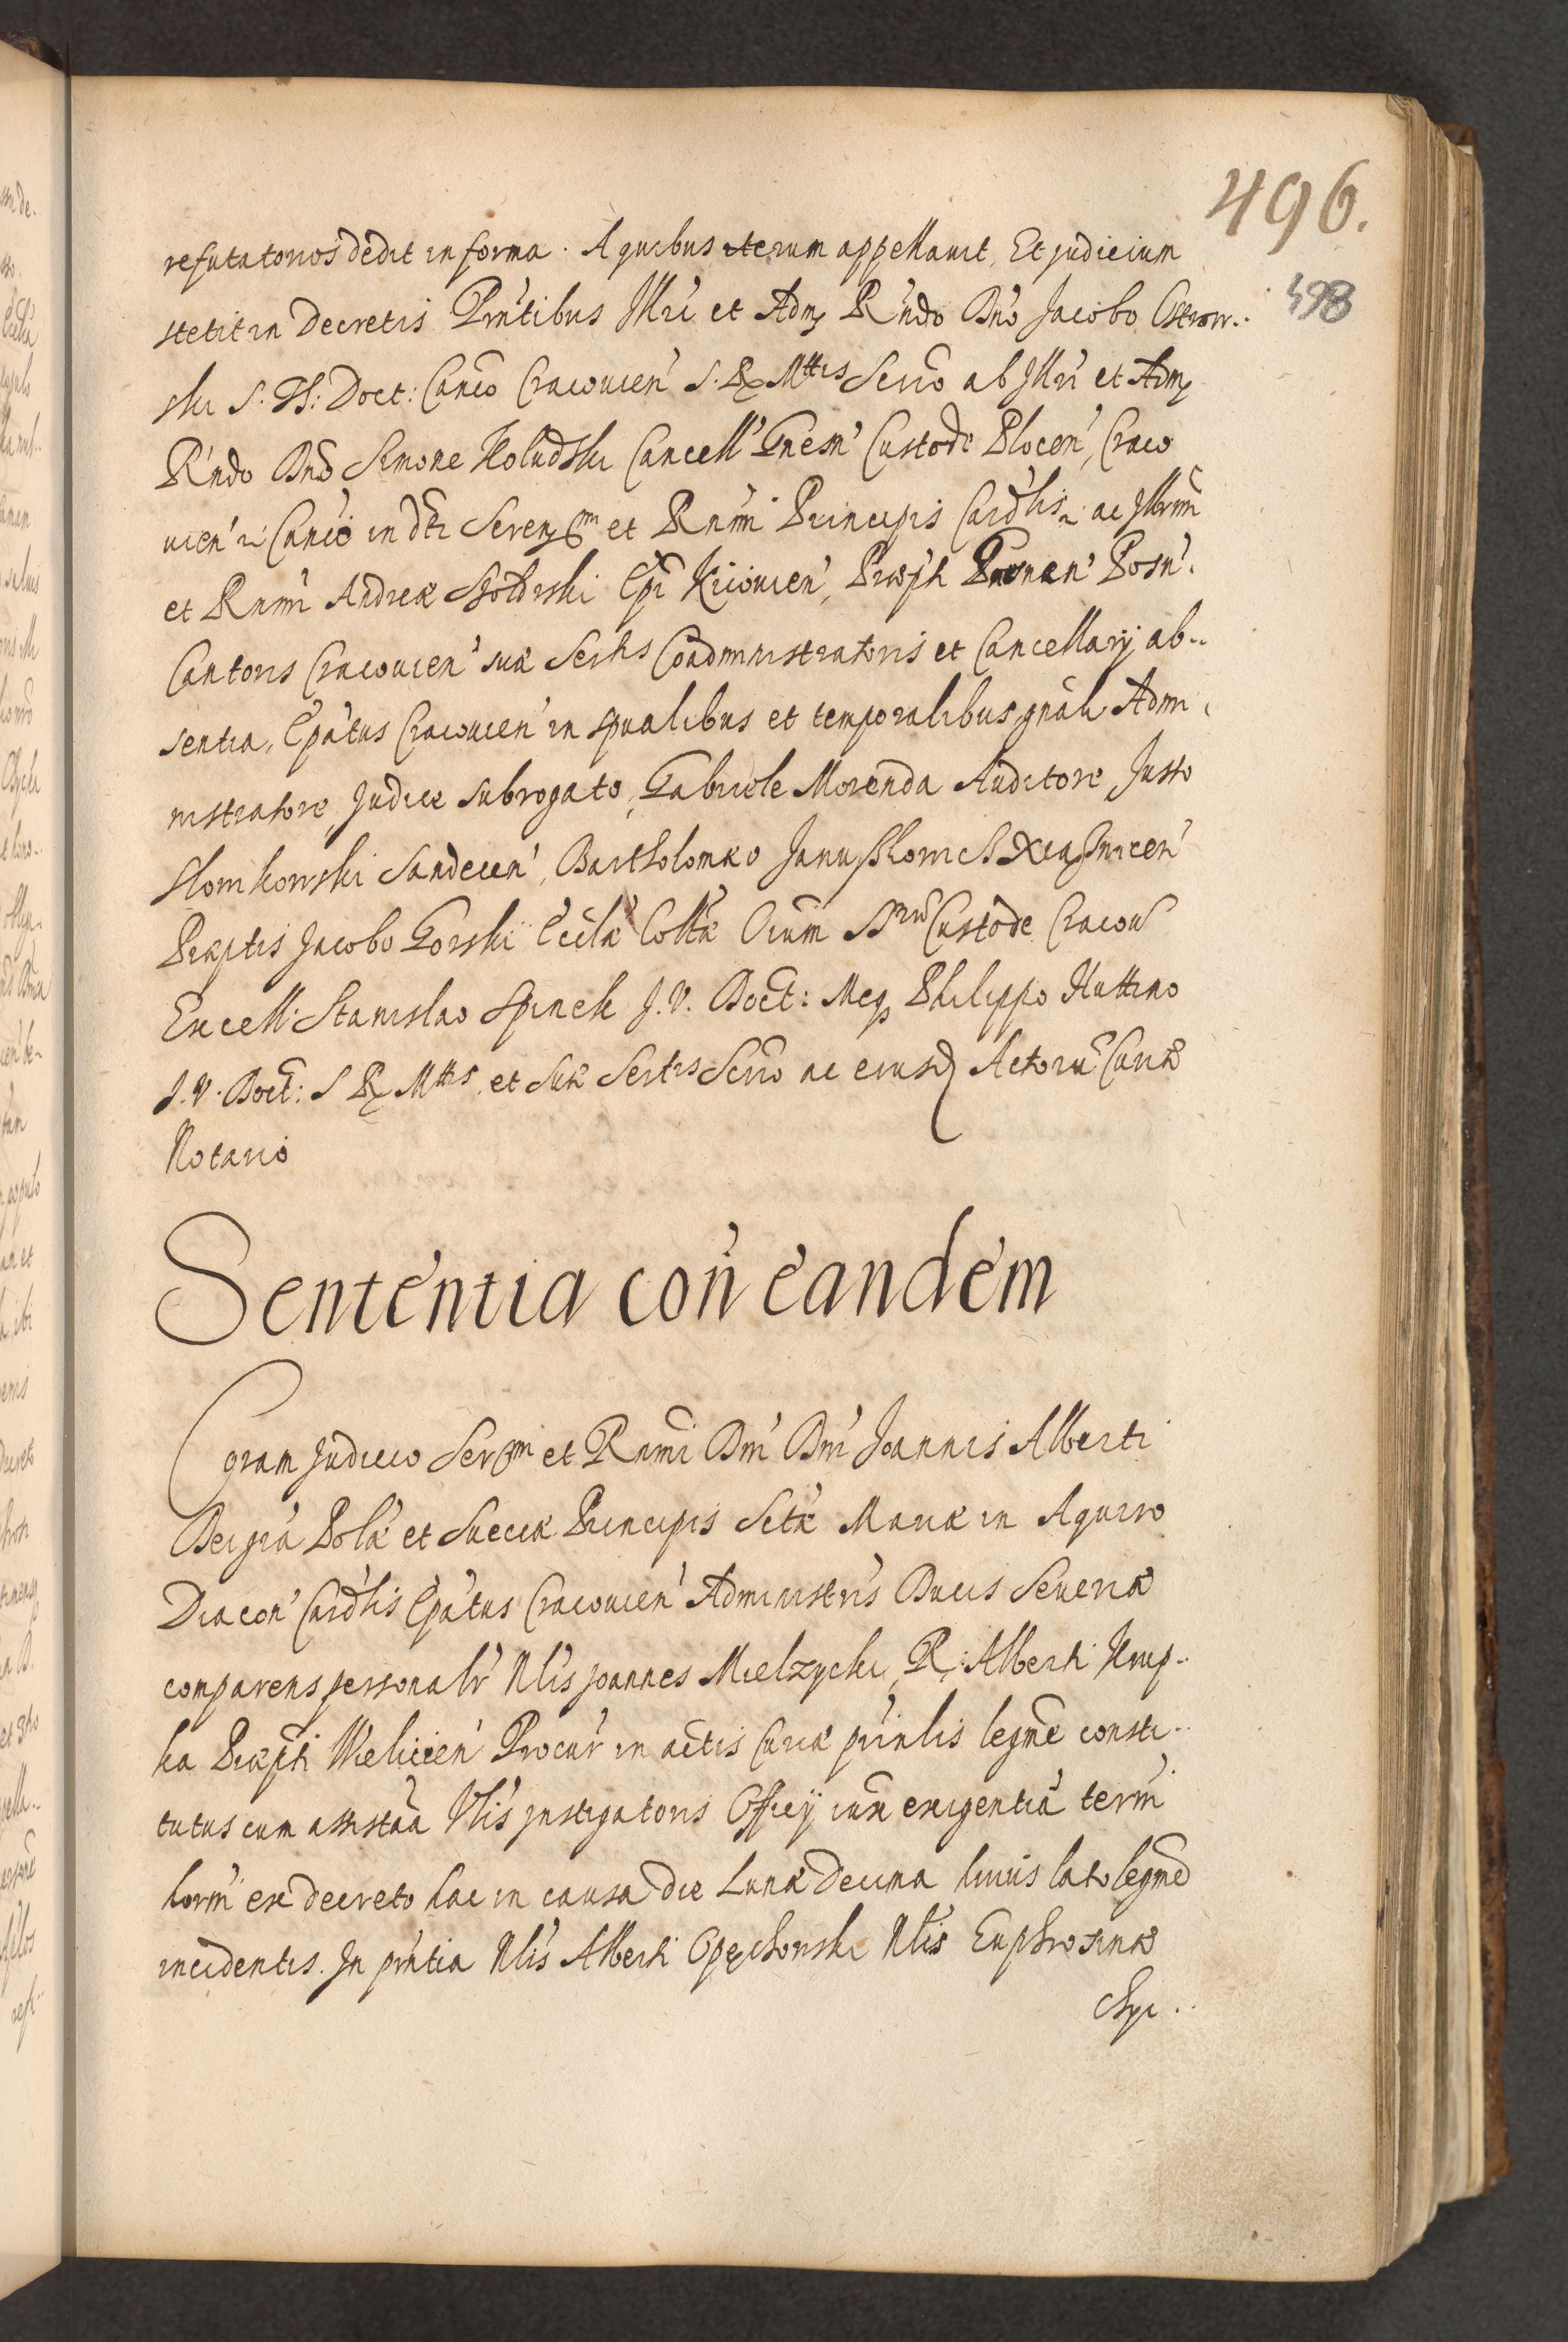 496.
498
refutatorios dedit in forma. A quibus iterum appellauit, Et judicium
stetit in Decretis Pn̄tibus Illri et Adm R'ndo Dn̄o Jacobo Ostrow..
ski S. Th: Doct: Canco Cracouien' S. R. Mttis Scrio ab Illri et Adm
R'ndo Dn̄o Simone Koludzki Cancell' Gnesn' Custode Plocen', Craco
uien' Canco in dti Seren et Rnmi Principis Cardlis ac Illrmi
et Rnmi Andreæ Szoldrski Epi Kiiouien', Præpti Posn'.
Cantoris Cracouien' suæ Sertis Coadministratoris et Cancellarij ab..
sentia, Epatus Cracouien' in spualibus et temporalibus gnāli Admi
nistratore, Judice subrogato, Gabriele Morenda Auditore, Justo
Slowikowski Sandecen', Bartholomæo Januszkowic
Præptis Jacobo Gorski Ecclæ Collæ Oium SSrū Custode Cracou'
Excell: Stanislao Spinek J. V. Doct: Philippo Huttino
J. V. Doct: S R Mttis et Suæ Sertis Scrio ac eiusd Actorū Curiæ
Notario
Sententia con' eandem
Coram Judicio Sermi et Rnmi Dn̄i Dn̄i Joannis Alberti
Dei gra Polæ et Sueciæ Principis Sctæ Mariæ in Aquiro
Diacon' Cardlis Epatus Cracouien' Administris Ducis Seueriæ
comparens personalr Nlis Joannes Mielzycki, R. Alberti Krup..
ka Præpti Wielicien' Procur in actis Curiæ pn̄tis legme consti..
tutus cum assistā Nlis Instigatoris Officij iuxa exigentiā term'
horm' ex decreto hac in causa die Lunæ Decima huius lato legme
incidentis. In pn̄tia Nlis Alberti Opęchowski Nlis Euphrosinæ
Chy..